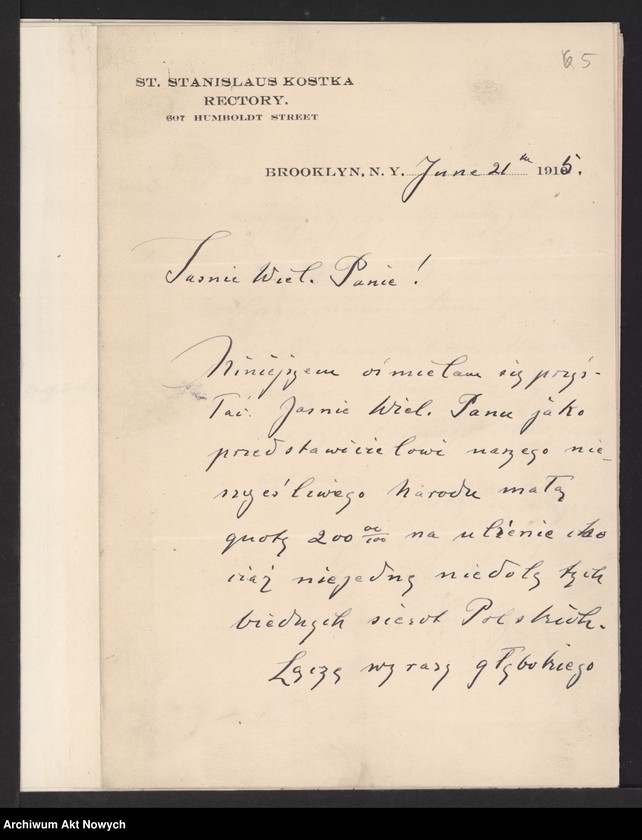 65
ST. STANISLAUS KOSTKA
RECTORY.
607 HUMBOLDT STREET
BROOKLYN, N. Y. June 21 th 1915.
Jasnie Wiel. Panie!
Niniejszem ośmielam się przys-
łać Jasnie Wiel. Panu jako
przedstawicielowi naszego nie-
szczęśliwego Narodu małą
quotę 200 00/100 na ulżenie cho
ciaż niejedną niedolę tych
biednych sierot Polskich.
Łączę wyrazy głębokiego
Archiwum Akt Nowych